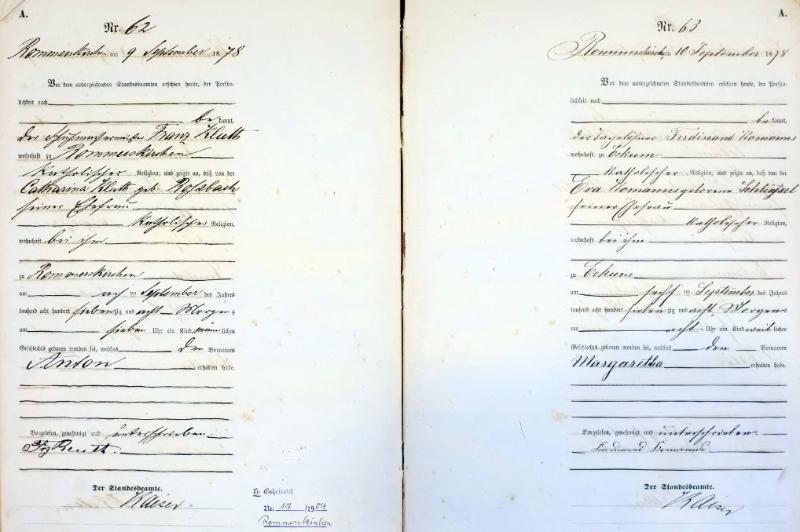 A.
Nr. 62
Rommerskirchen am 9 September 1878
Vor dem unterzeichneten Standesbeamten erschien heute, der Persön-
lichkeit nach
bekannt,
der Franz Kluth
wohnhaft zu Rommerskirchen
Katholischer Religion, und zeigte an, daß von der
Catharina Kluth geb. Roßbach
seiner Ehefrau
Katholischer Religion,
wohnhaft bei ihm
zu Rommerskirchen
am acht ten September des Jahres
tausend acht hundert siebenzig und acht Morgens
um sieben Uhr ein Kind männlichen
Geschlechts geboren worden sei, welches den Vornamen
Anton erhalten habe.
Vorgelesen, genehmigt und unterschrieben
Der Standesbeamte.
Kaiser
H. Geheiratet
No. 17 1904
Rommerskirchen
A.
Nr. 63
Rommerskirchen am 10 September 1878
Vor dem unterzeichneten Standesbeamten erschien heute, der Persön-
lichkeit nach
bekannt,
der Tagelöhner Ferdinand Nomanns
wohnhaft zu Eckum
Katholischer Religion, und zeigte an, daß von der
Eva Nomanns geborene
seiner Ehefrau
Katholischer Religion,
wohnhaft bei ihm
zu Eckum
am sechs ten September des Jahres
tausend acht hundert siebenzig und acht Morgens
um acht Uhr ein Kind weiblichen
Geschlechts geboren worden sei, welches den Vornamen
Margaretha erhalten habe.
Vorgelesen, genehmigt und unterschrieben
Ferdinand
Der Standesbeamte.
Kaiser